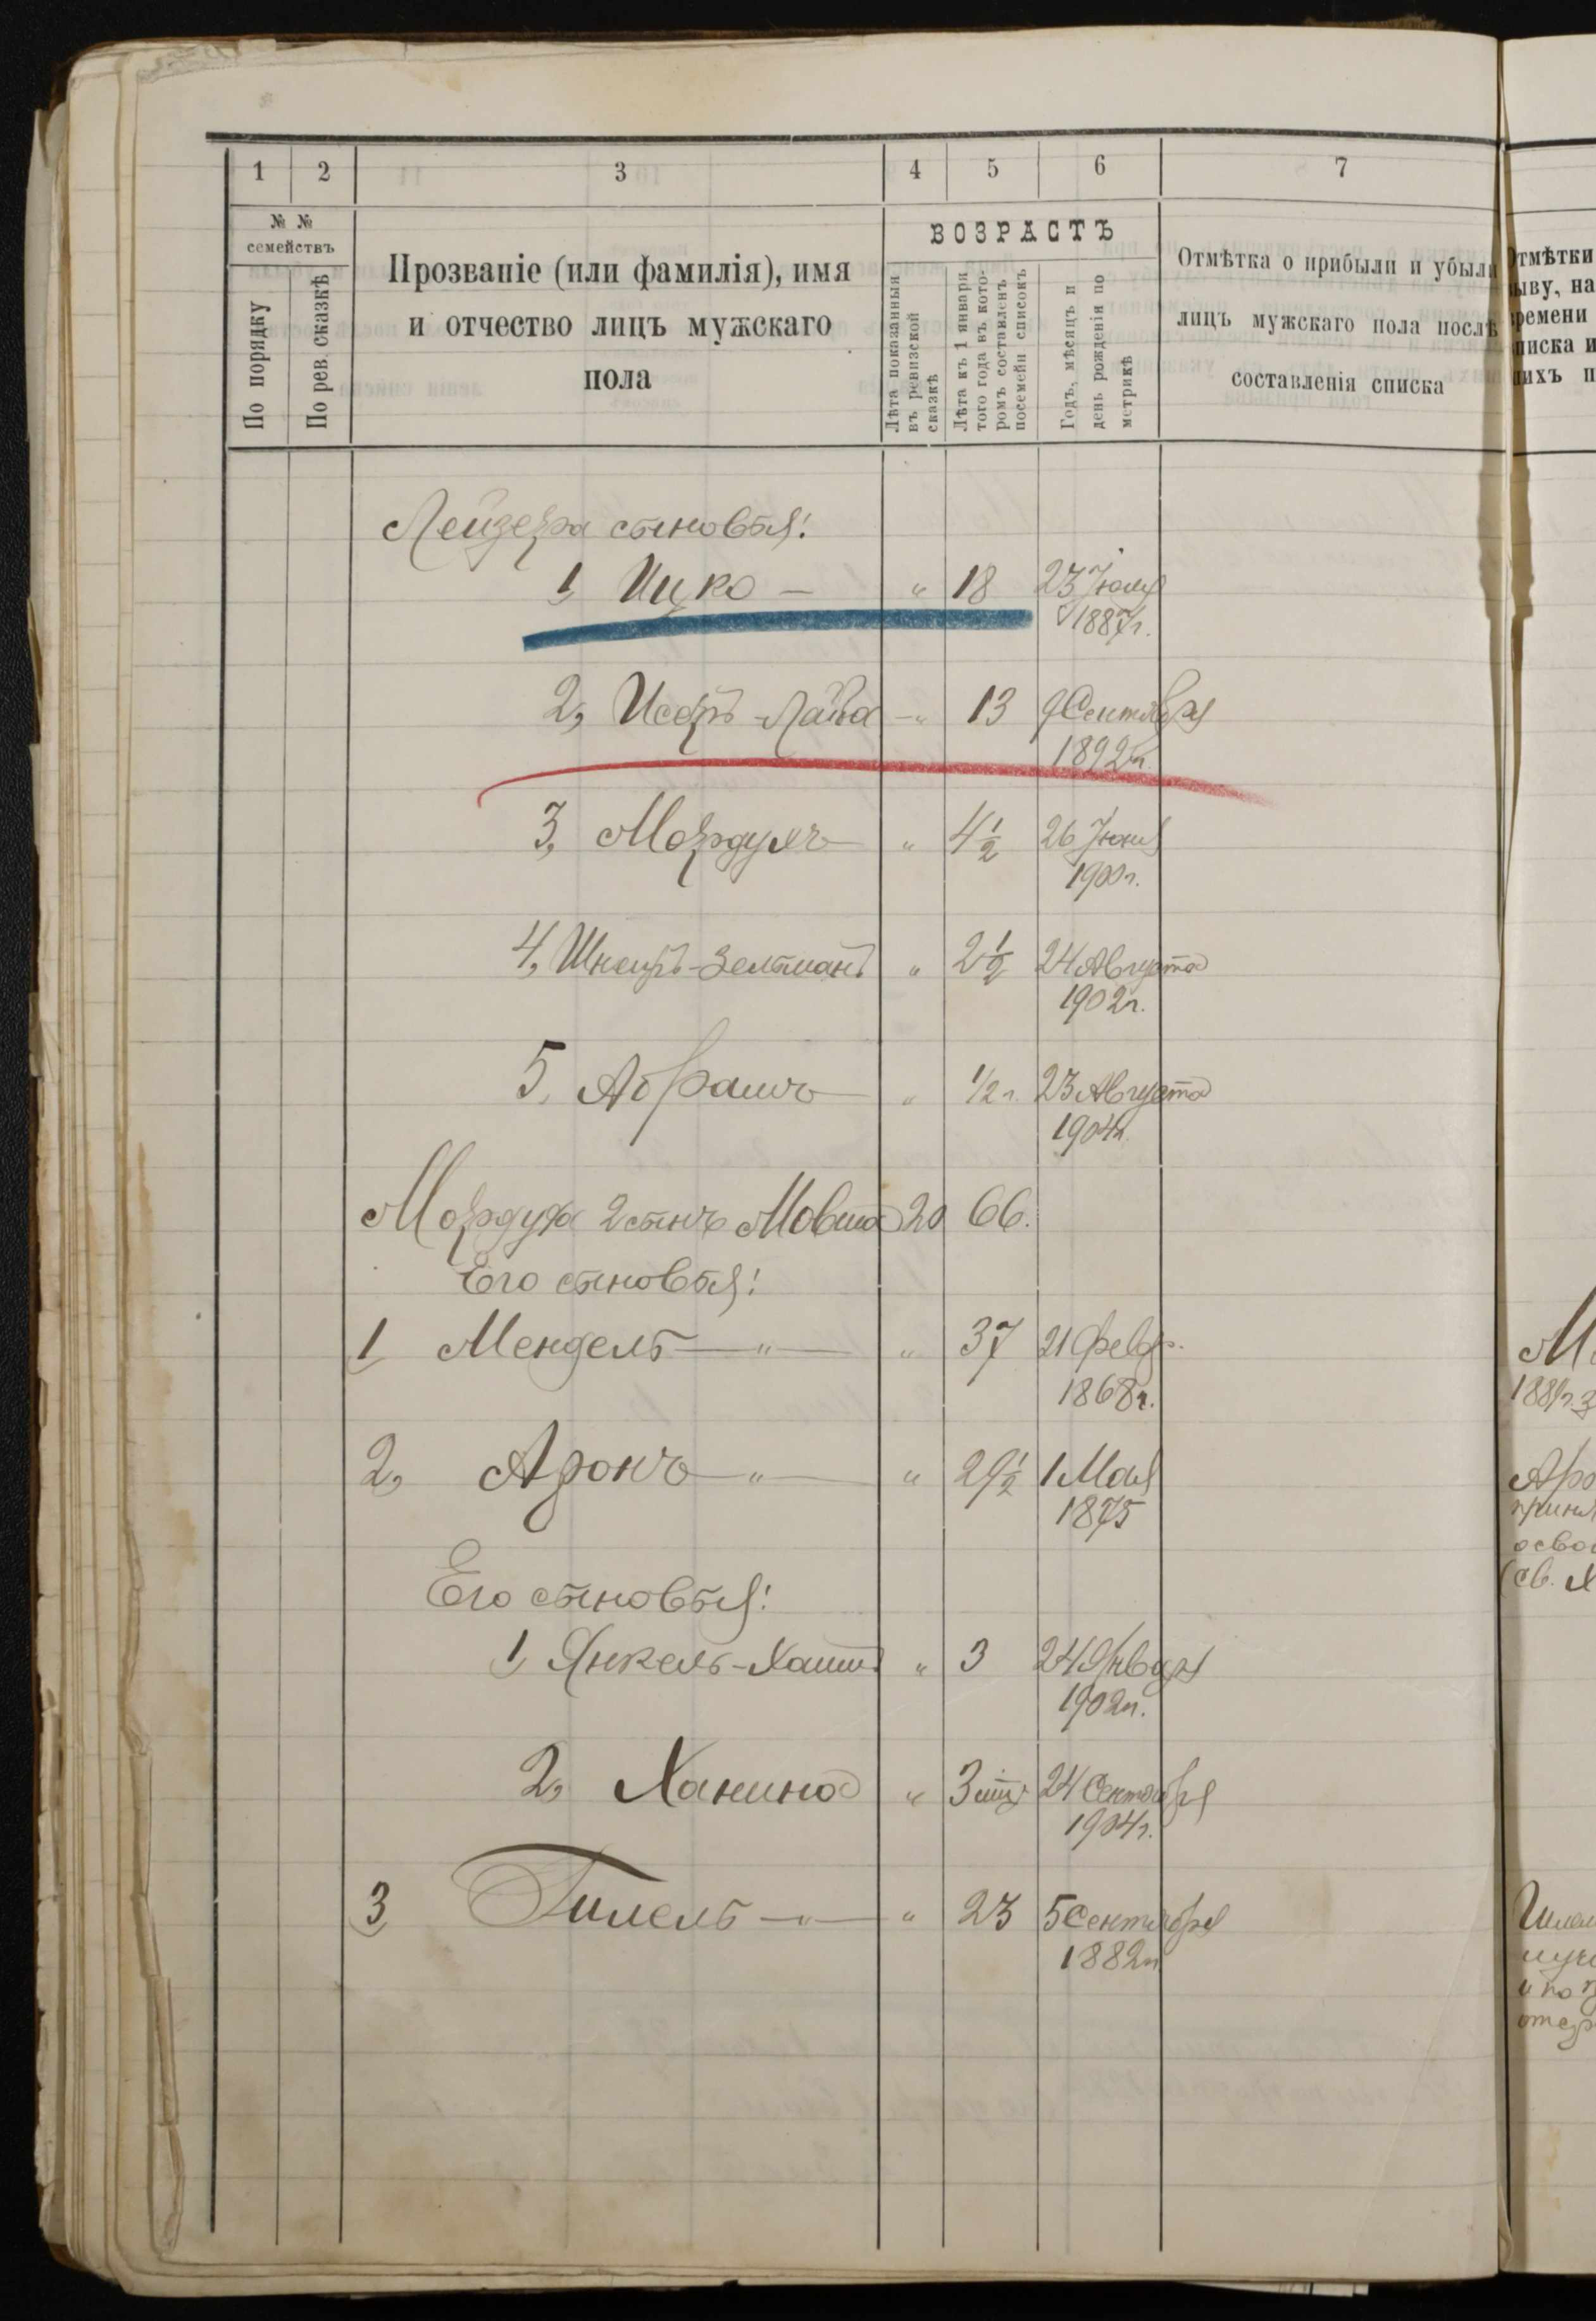 1 2 3 4 5 6 7
№ № семействъ
По порядку
По рев. сказкѣ
Прозваніе (или фамилія), имя
и отчество лицъ мужскаго
пола
ВОЗРАСТЪ
Лѣта показанныя
въ ревизской
сказкѣ
Лѣта къ 1 января
того года въ кото-
ромъ составленъ
посемейн списокъ
Годъ, мѣсяцъ и
день рожденія по
метрикѣ
Отмѣтка о прибыли и убыли
лицъ мужскаго пола послѣ
составленія списка
Лейзера сыновья:
1, Ицко — " 18 23 Іюля
1887г.
2, Исеръ-Лейба " 13 9 Сентября
1892г.
3, Мордухъ " 4 1/2 26 Іюня
1900г.
4, Шнеиръ-Зельманъ " 2 1/2 24 Августа
1902г.
5, Абрамъ " 1/2 г. 23 Августа
1904г.
Мордуха 2 сынъ Мовша 20 66.
Его сыновья:
1, Мендель — " — " 37 21 Февр.
1868г.
2, Аронъ — " — " 29 1/2 1 Мая
1875
Его сыновья:
1, Янкель- " 3 24 Января
1902г.
2, Ханина " 3 24 Сентября
1904г.
3, Гилель — " — " 23 5 Сентября
1882г.